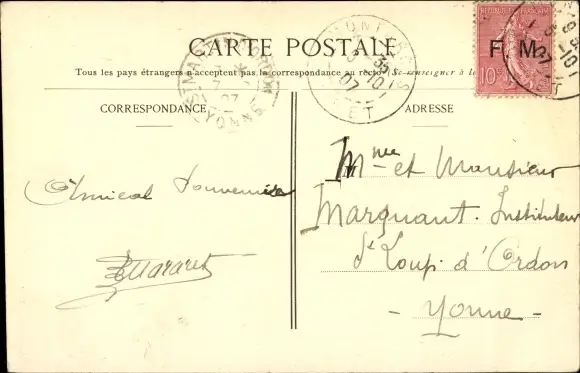 CARTE POSTALE
Tous les pays étrangers n'acceptent pas la correspondance au recto (Se renseigner à la
CORRESPONDANCE
ADRESSE
F. M.
10
Amical Souvenir
Mme et Monsieur
Marquant. Instituteur
St Loup d'Ordon
- Yonne -